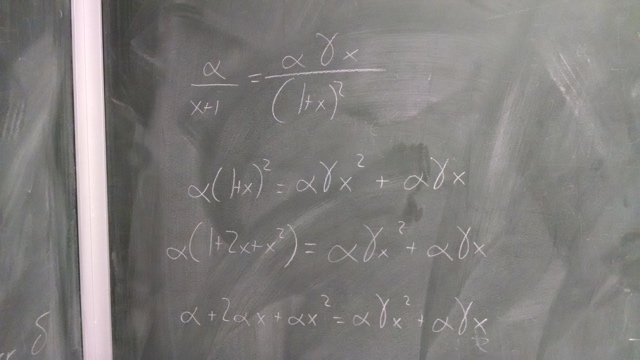 α/(x+1) = αγx/(1+x)²
α(1+x)² = αγx² + αγx
α(1+2x+x²) = αγx² + αγx
α+2αx+αx² = αγx² + αγx
δ